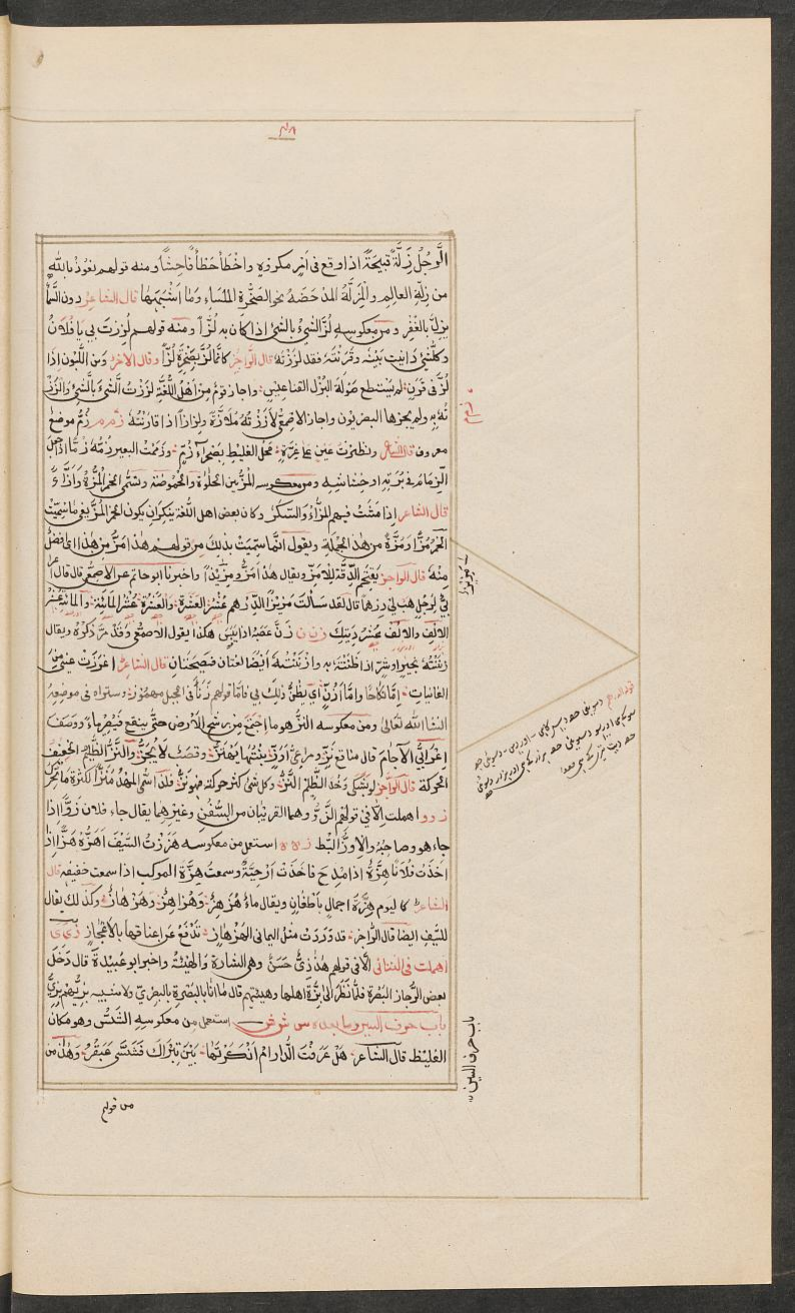 الرجل زلة قبيحة اذا وقع في امر مكروه واخطأ خطأ فاحشا ومنه قولهم نعوذ بالله
من زلة العالم والمزلة المدحضة نحو الصخرة الملساء وما اشبهها قال الشاعر دون السما
يزل بالغفر ومن معكوسه لز الشئ بالشئ اذا كان به لزا ومنه قولهم لززت بي يا فلان
وكل شئ دانيت بينه وقرنته فقد لززته قال الراجز كانما لز بصخرة لزا وقال الاخر وابن اللبون اذا
لز في قرن لم يستطع صولة البزل القناعيس واجاز قوم من اهل اللغة لززت الشئ بالشئ والززته
به ولم يجزها البصريون واجاز الاصمعي لاززته ملازة ولزازا اذا قارنته زم م زم موضع
معروف قال الشاعر ونظرت عين على غرة محل الغليط بصحراء زم وزممت البعير زمه زما اذا جعل
الزمام في برته او خشاشه ومن معكوسه المز بين الحلاوة والحموضة وتسمى الخمر المزة والمزاء
قال الشاعر اذا مشت فيهم المزاء والسكر وكان بعض اهل اللغة ينكر ان يكون الخمر المز يعني ما سميت
الخمر مزا ومزة من هذا الجملة ويقول انما سميت بذلك من قولهم هذا امز من هذا اي افضل
منه قال الراجز يعتم الدقة للامز ويقال هذا امز ومزيز واخبرنا ابو حاتم عن الاصمعي قال قال اعرا
بي لرجل هب لي درهما قال لقد سالت مزيزا الدرهم عشر العشرة والعشرة عشر المائة والمائة عشر
الالف والالف عشر ديتك زن ن زن عصبه اذا يبس هكذا يقول الاصمعي وقد مر ذكره ويقال
زننته بخير او شر اذا ظننته به وازننته ايضا لغتان فصيحتان قال الشاعر
الغانيات اما نكاحا واما ازن اي يظن ذلك بي فاما قولهم زنأ في الجبل مهموز وستراه في موضعه
ان شا الله تعالى ومن معكوسه النز هو ما اجتمع من رشح الارض حتى يستنقع فيصير ماء ووصف
اعرابي الاجام قال مناقع نز ومراعي اوز نبتها يهتز وقصب لا يجز والنز الظليم الخفيف
الحركة قال الراجز او بشكى وخد الظليم النز وكل شئ كثر حركته فهو نز فلذا سمي المهد منزا لكثرة ما يحرك
ز و و اهملت الا في قولهم الزو وهما القرنيان من السفن وغيرهما يقال جاء فلان زوا اذا
جاء هو وصاحبه والاوز البط ز ه ه استعمل من معكوسه هززت السيف اهزه هزا اذا
اخذت فلانا هزة اذا مدح فاخذت ارحية وسمعت هزة الموكب اذا سمعت حفيفه قال
الشاعر كاليوم هزة اجمال باظعان ويقال ماء هزهز وهزاهز وهزهاز وكذلك يقال
للسيف ايضا قال الراجز قد وردت مثل اليماني الهزهاز تدفع عن اعناقها بالاعجاز ز ي ي
اهملت في الثنائي الا في قولهم هذا زي حسن وهي الشارة والهيئة واخبر ابو عبيدة قال دخل
بعض الرجاز البصرة فلما نظر الى بزة اهلها وهيئتهم قال ما انا بالبصرة بالبصري ولا شبيه بزيهم بزي
باب حرف السين وما بعده س ش ش استعمل من معكوسه الشس وهو مكان
الغليظ قال الشاعر هل عرفت الدار ام انكرتها بين تبراك فشسي عبقر وهذا من
من قولهم
باب حرف السين